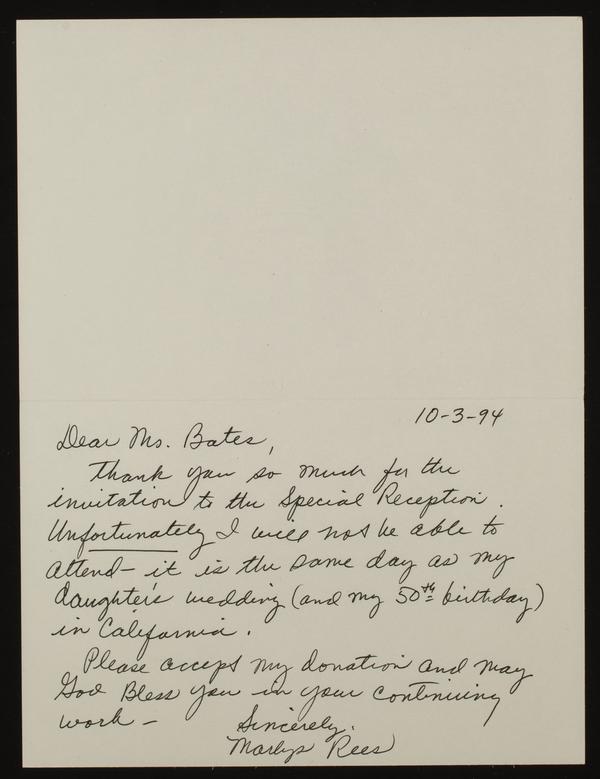 10-3-94
Dear Ms. Bates,
Thank you so much for the
invitation to the Special Reception.
Unfortunately I will not be able to
attend - it is the same day as my
daughter's wedding (and my 50th birthday)
in California.
Please accept my donation and may
God Bless you in your continuing
work -
Sincerely,
Marlys Rees